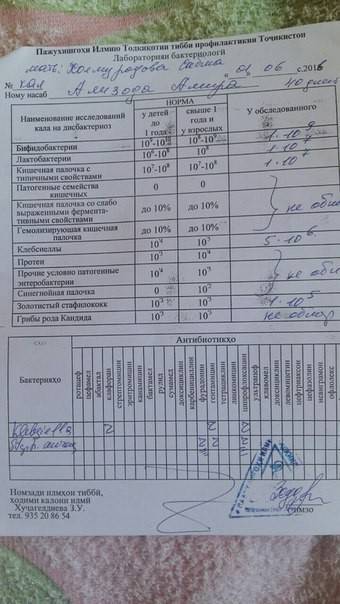 Пажухишгоҳи Илмию Толқиқотии тибби профилактикии Тоҷикистон
Лабораторияи бактериологӣ
мать: Холмуродова
01 06 с.2016
№ кал
Ному насаб Ализода Амира 40 дней
Наименование исследований кала на дисбактериоз
НОРМА
у детей до 1 года
свыше 1 года и у взрослых
У обследованного
Бифидобактерии 10⁹
Лактобактерии 10⁶-10⁸ 10⁸ 1·10⁷
Кишечная палочка с типичными свойствами 10⁷-10⁸ 10⁷-10⁸ 1·10⁷
Патогенные семейства кишечных 0 0
Кишечная палочка со слабо выраженными ферментативными свойствами до 10% до 10% не обн
Гемолизирующая кишечная палочка до 10% до 10%
Клебсиеллы 10⁴ 10⁵ 5·10⁶
Протеи 10³ 10⁴
Прочие условно патогенные энтеробактерии 10⁴ 10⁵ не обн
Синегнойная палочка 0 10²
Золотистый стафилококк 10³ 10³ 1·10⁵
Грибы рода Кандида 10³ 10³ не обнар
Бактерияҳо
Антибиотикҳо
ротацеф
цефамел
абактал
клафоран
стрептомицин
эритромицин
канамицин
бактамед
рулид
сумамед
доксициллин
карбенициллин
фурадонин
гентамицин
тетрациклин
линкомицин
ципрофлоксацин
ультрацеф
клавомед
доксициклин
левомицетин
цефтриаксон
цефазолин
невиграмон
офлолекс
Klebsiella
Номзади илмҳои тиббӣ,
ходими калони илмӣ
Хучагелдиева З.У.
тел. 935 20 86 54
имзо